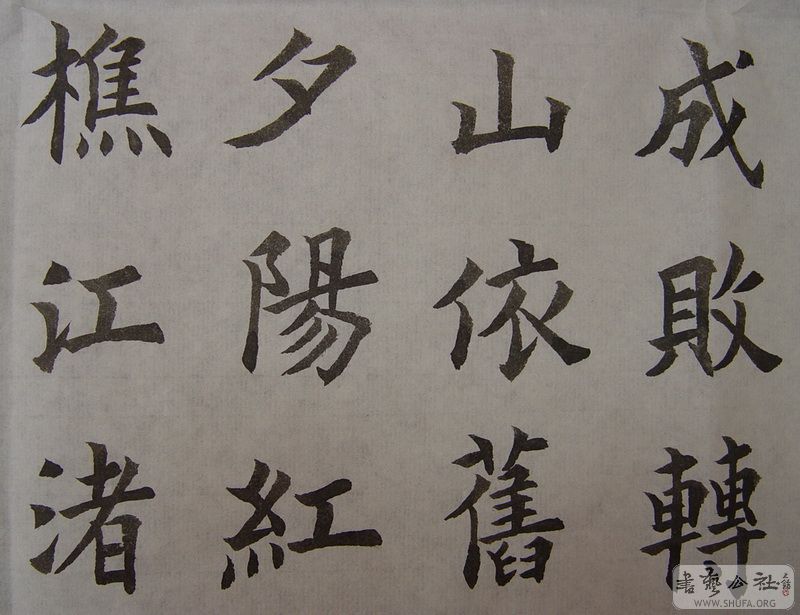 成敗轉
山依舊
夕陽紅
樵江渚
書藝公社
WWW.SHUFA.ORG